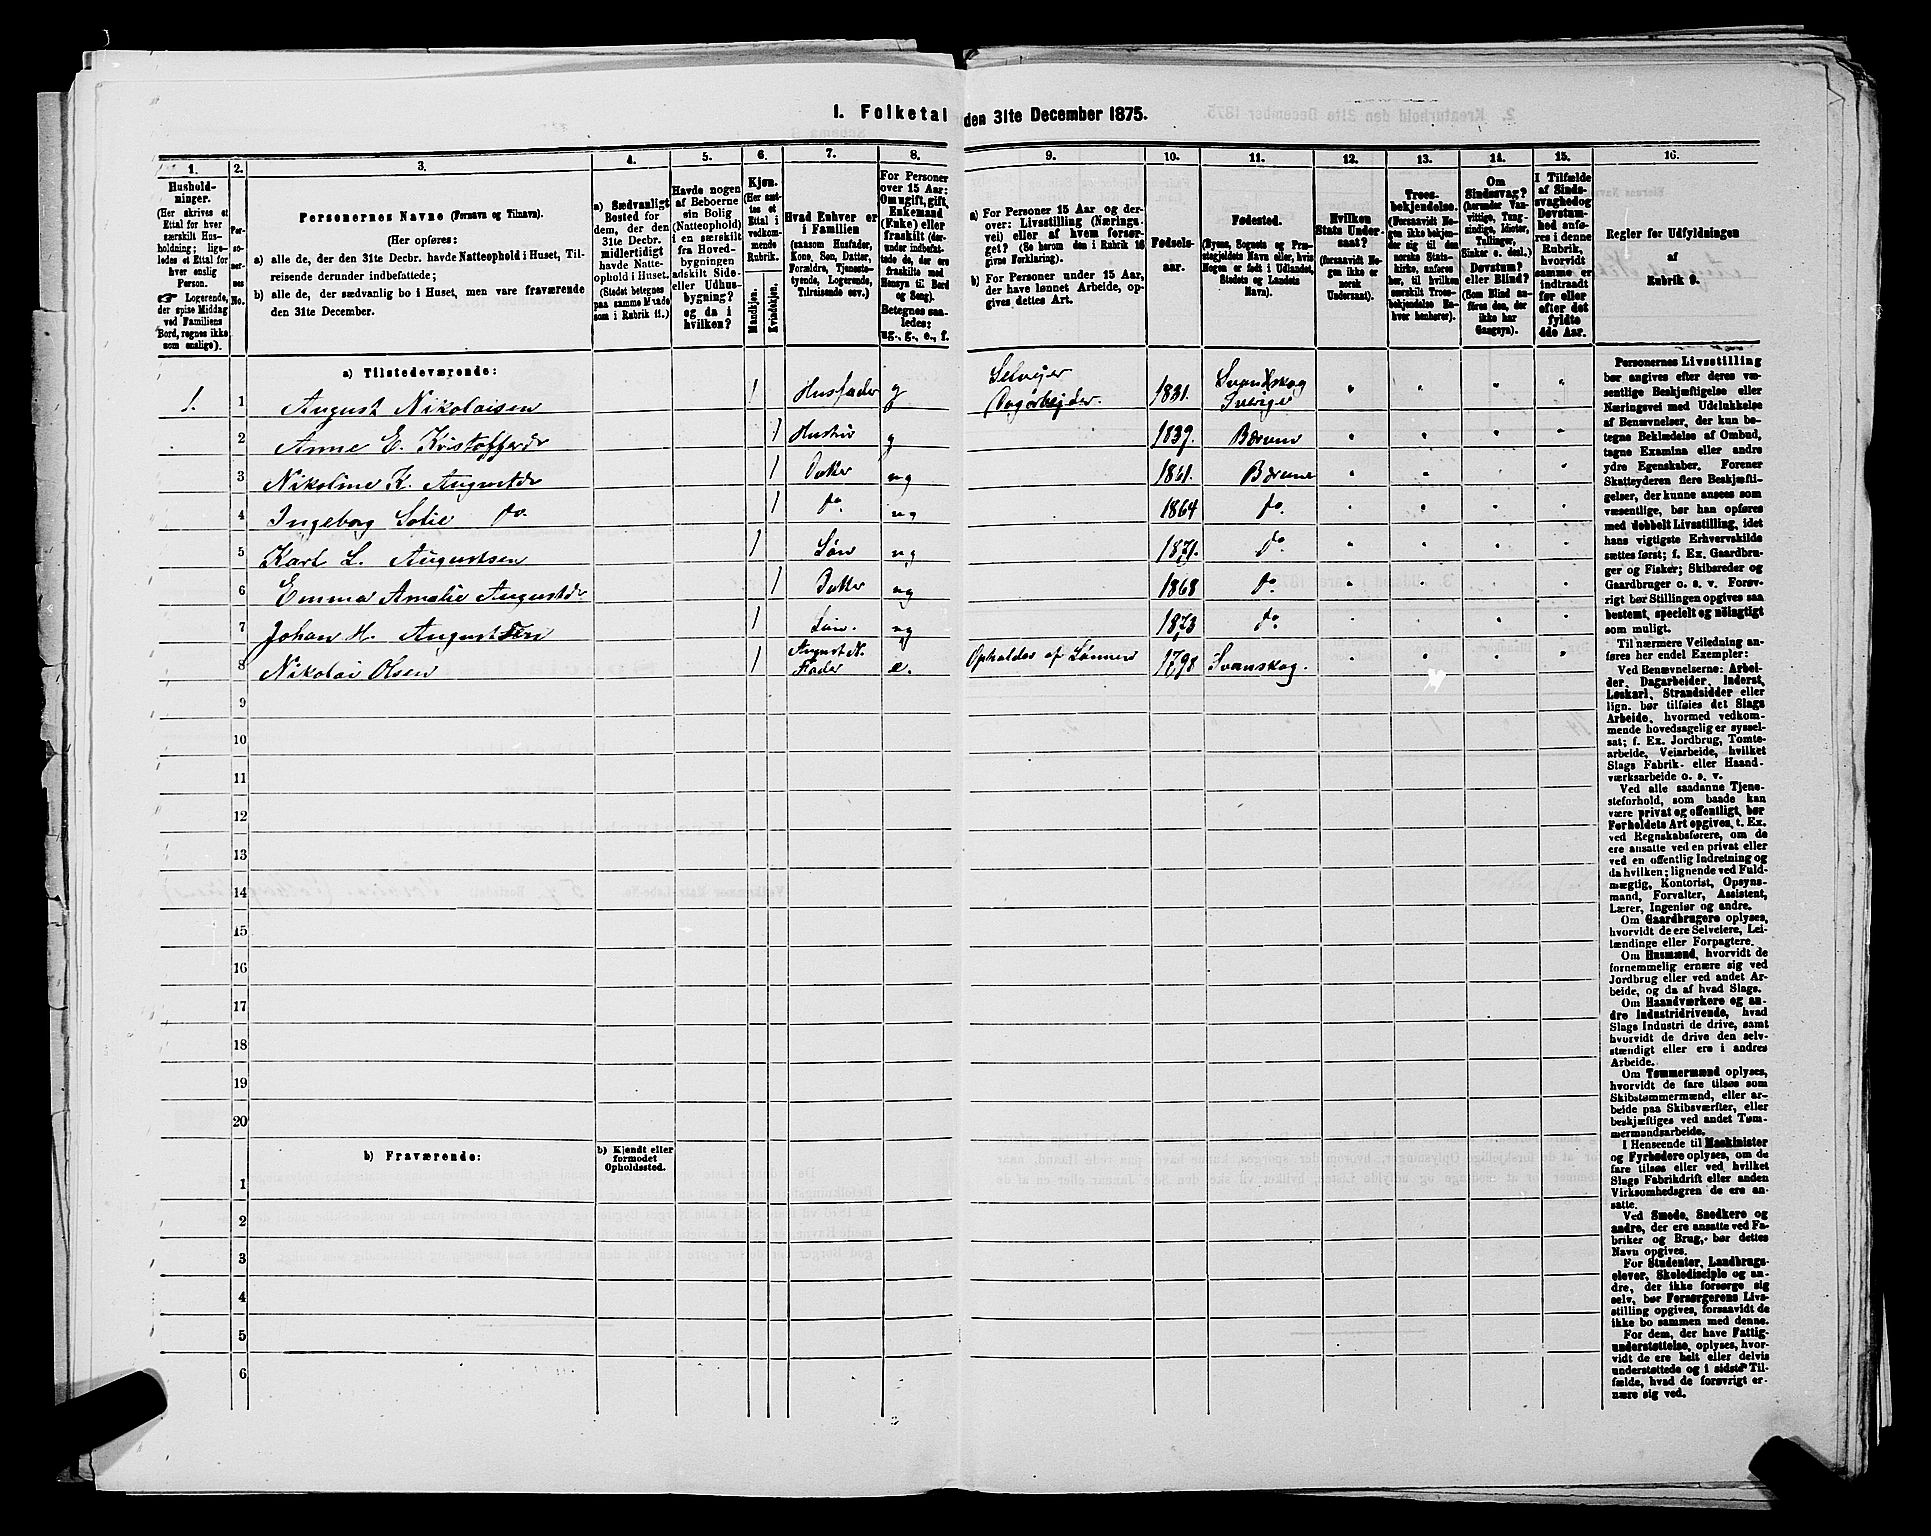 1. Folketal den 31te December 1875.
1. 2. 3. 4. 5. 6. 7. 8. 9. 10. 11. 12. 13. 14. 15. 16.
Hushold-
ninger.
(Her skrives et
Ettal for hver
særskilt Hus-
holdning; lige-
ledes et Ettal for
hver enslig
Person.
☞ Logerende,
der spise Middag
ved Familiens
Bord, regnes ikke
som enslige).
Per-
so-
ner-
nes
No.
Personernes Navne (Fornavn og Tilnavn).
(Her opføres:
a) alle de, der den 31te Decbr. havde Natteophold i Huset, Til-
reisende derunder indbefattede;
b) alle de, der sædvanlig bo i Huset, men vare fraværende
den 31te December.
a) Sædvanligt
Bosted for
dem, der den
31te Decbr.
midlertidigt
havde Natte-
ophold i Huset.
(Stedet betegnes
paa samme Maade
som i Rubrik 11.)
Havde nogen
af Beboerne
sin Bolig
(Natteophold)
i en særskilt
fra Hoved-
bygningen
adskilt Side-
eller Udhus-
bygning?
og da i
hvilken?
Kjøn.
(Her sæt-
tes et
Ettal i
vedkom-
mende
Rubrik.
Mandkjøn.
Kvindekjøn.
Hvad Enhver er
i Familien
(saasom Husfader,
Kone, Søn, Datter,
Forældre, Tjeneste-
tyende, Logerende,
Tilreisende osv.)
For Personer
over 15 Aar:
Om ugift, gift,
Enkemand
(Enke) eller
fraskilt (der-
under indbefat-
tede de, der ere
fraskilte med
Hensyn til Bord
og Seng).
Betegnes saa-
ledes:
ug., g., e., f.
a) For Personer 15 Aar og der-
over: Livsstilling (Nærings-
vei) eller af hvem forsør-
get? (Se herom den i Rubrik 16
givne Forklaring).
b) For Personer under 15 Aar,
der have lønnet Arbeide, op-
gives dettes Art.
Fødsels-
aar.
Fødested.
(Byens, Sognets og Præ-
stegjeldets Navn eller, hvis
Nogen er født i Udlandet,
Stedets og Landets
Navn).
Hvilken
Stats Under-
saat?
(forsaavidt No-
gen ikke er
norsk
Undersaat).
Troes-
bekjendelse.
(Forsaavidt No-
gen ikke bekjen-
der sig til den
norske Stats-
kirke, anføres
her, til hvilken
særskilt Troes-
bekjendelse En-
hver henhører).
Om
Sindssvag?
(herunder Van-
vittige, Tung-
sindige, Idioter,
Tullinger,
Sinker o. desl.)
Døvstum?
eller Blind?
(Som Blind an-
føres den, der
ikke har
Gangsyn).
I Tilfælde
af Sinds-
svaghed og
Døvstum-
hed anfø-
res i denne
Rubrik,
hvorvidt
samme er
indtraadt
før eller
efter det
fyldte
4de Aar.
Regler for Udfyldningen
af
Rubrik 9.
a) Tilstedeværende:
1. 1 August Nikolaisen 1 Husfader g Selveier Dagarbejder. 1831. Svanskog Sverige " " " "
2 Anne E. Kristoffersdr 1 Hustru g 1839. Bærum " " " "
3 Nikoline K. Augustdr 1 Datter ug 1861. Bærum " " " "
4 Ingeborg Sofie do. 1 do. ug 1864 do. " " " "
5 Karl L. Augustsen 1 Søn ug 1871. do. " " " "
6 Emma Amalie Augustdr 1 Datter ug 1868 do. " " " "
7 Johan H. Augustsen 1 Søn. ug 1873 do. " " " "
8 Nikolai Olsen 1 August N. Fader e. Opholdes af Sønnen 1798 Svanskog. " " " "
9
10
11
12
13
14
15
16
17
18
19
20
b) Fraværende:
b) Kjendt eller
formodet
Opholdssted.
1
2
3
4
5
6
Personernes Livsstilling
bør angives efter deres væ-
sentlige Beskjæftigelse eller
Næringsvei med Udelukkelse
af Benævnelser, der kun be-
tegne Beklædelse af Ombud,
tagne Examina eller andre
ydre Egenskaber. Forener
Skatteyderen flere Beskjæfti-
gelser, der kunne ansees som
væsentlige, bør han opføres
med dobbelt Livsstilling, idet
hans vigtigste Erhvervskilde
sættes først; f. Ex. Gaardbru-
ger og Fisker; Skibsreder og
Gaardbruger o. s. v. Forøv-
rigt bør Stillingen opgives saa
bestemt, specielt og nöiagtigt
som muligt.
Til nærmere Veiledning an-
føres her endel Exempler:
Ved Benævnelserne: Arbei-
der, Dagarbeider, Inderst,
Løskarl, Strandsidder eller
lign. bør tilføies det Slags
Arbeide, hvormed vedkom-
mende hovedsagelig er syssel-
sat; f. Ex. Jordbrug, Tomte-
arbeide, Veiarbeide, hvilket
Slags Fabrik- eller Haand-
værksarbeide o. s. v.
Ved alle saadanne Tjene-
steforhold, som baade kan
være privat og offentligt, bør
Forholdets Art opgives, t. Ex.
ved Regnskabsførere, om de
ere ansatte ved en privat eller
ved en offentlig Indretning og
da hvilken; lignende ved Fuld-
mægtig, Kontorist, Opsyns-
mand, Forvalter, Assistent,
Lærer, Ingeniør og andre.
Om Gaardbrugere oplyses,
hvorvidt de ere Selveiere, Lei-
lændinge eller Forpagtere.
Om Husmænd, hvorvidt de
fornemmelig ernære sig ved
Jordbrug eller ved andet Ar-
beide, og da af hvad Slags.
Om Haandværkere og an-
dre Industridrivende, hvad
Slags Industri de drive, samt
hvorvidt de drive den selv-
stændigt eller ere i andres
Arbeide.
Om Tømmermænd oplyses,
hvorvidt de fare tilsøs som
Skibstømmermænd, eller ar-
beide paa Skibsværfter, eller
beskjæftiges ved andet Tøm-
mermandsarbeide.
I Henseende til Maskinister
og Fyrbødere oplyses, om de
fare tilsøs eller ved hvilket
Slags Fabrikdrift eller anden
Virksomhedsgren de ere an-
satte.
Ved Smede, Snedkere og
andre, der ere ansatte ved Fa-
briker og Brug, bør dettes
Navn opgives.
For Studenter, Landbrugs-
elever, Skoledisciple og an-
dre, der ikke forsørge sig
selv, bør Forsørgerens Livs-
stilling opgives, forsaavidt de
ikke bo sammen med denne.
For dem, der have Fattig-
understøttelse, oplyses, hvor-
vidt de ere helt eller delvis
understøttede og i sidste Til-
fælde, hvad de forøvrigt er-
nære sig ved.